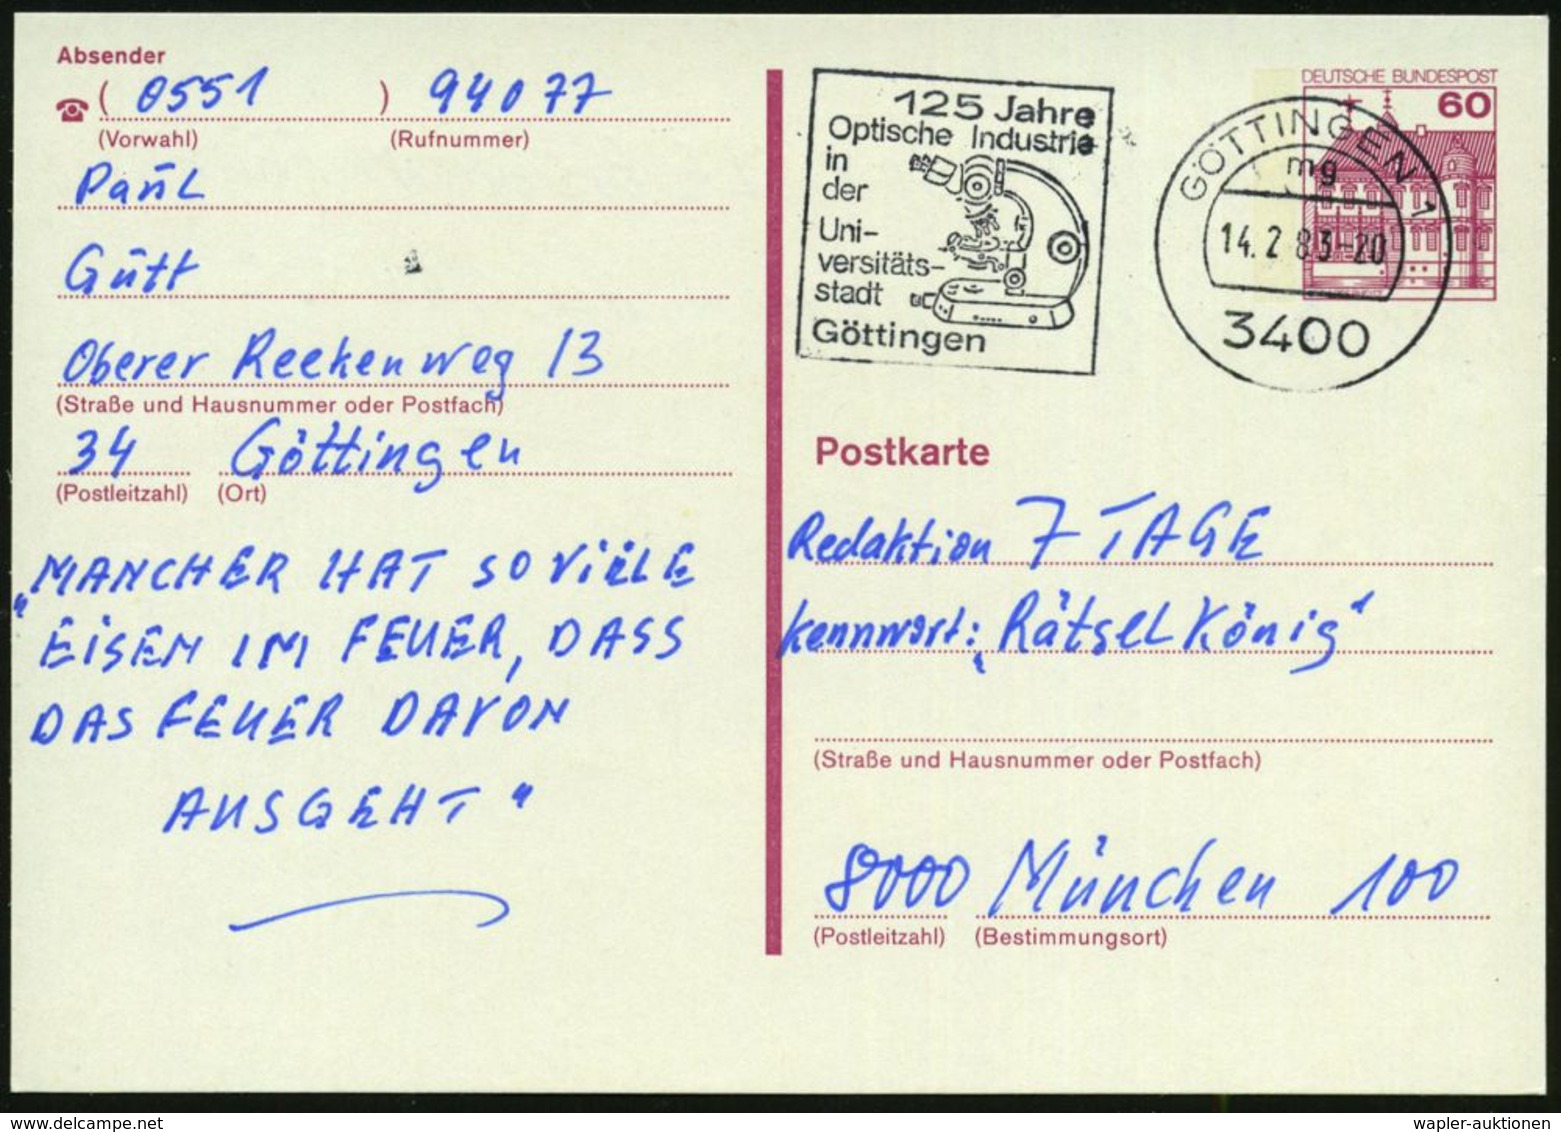 Absender
( 0551 ) 94077
(Vorwahl) (Rufnummer)
Paul
Gütt
Oberer Reekenweg 13
(Straße und Hausnummer oder Postfach)
34 Göttingen
(Postleitzahl) (Ort)
„MANCHER HAT SO VIELE
EISEN IM FEUER, DASS
DAS FEUER DAVON
AUSGEHT"
125 Jahre
Optische Industrie
in
der
Uni-
versitäts-
stadt
Göttingen
GÖTTINGEN 1
mg
14.2.83-20
3400
DEUTSCHE BUNDESPOST
60
Postkarte
Redaktion 7 TAGE
Kennwort: „Rätselkönig"
(Straße und Hausnummer oder Postfach)
8000 München 100
(Postleitzahl) (Bestimmungsort)
wapler-auktionen